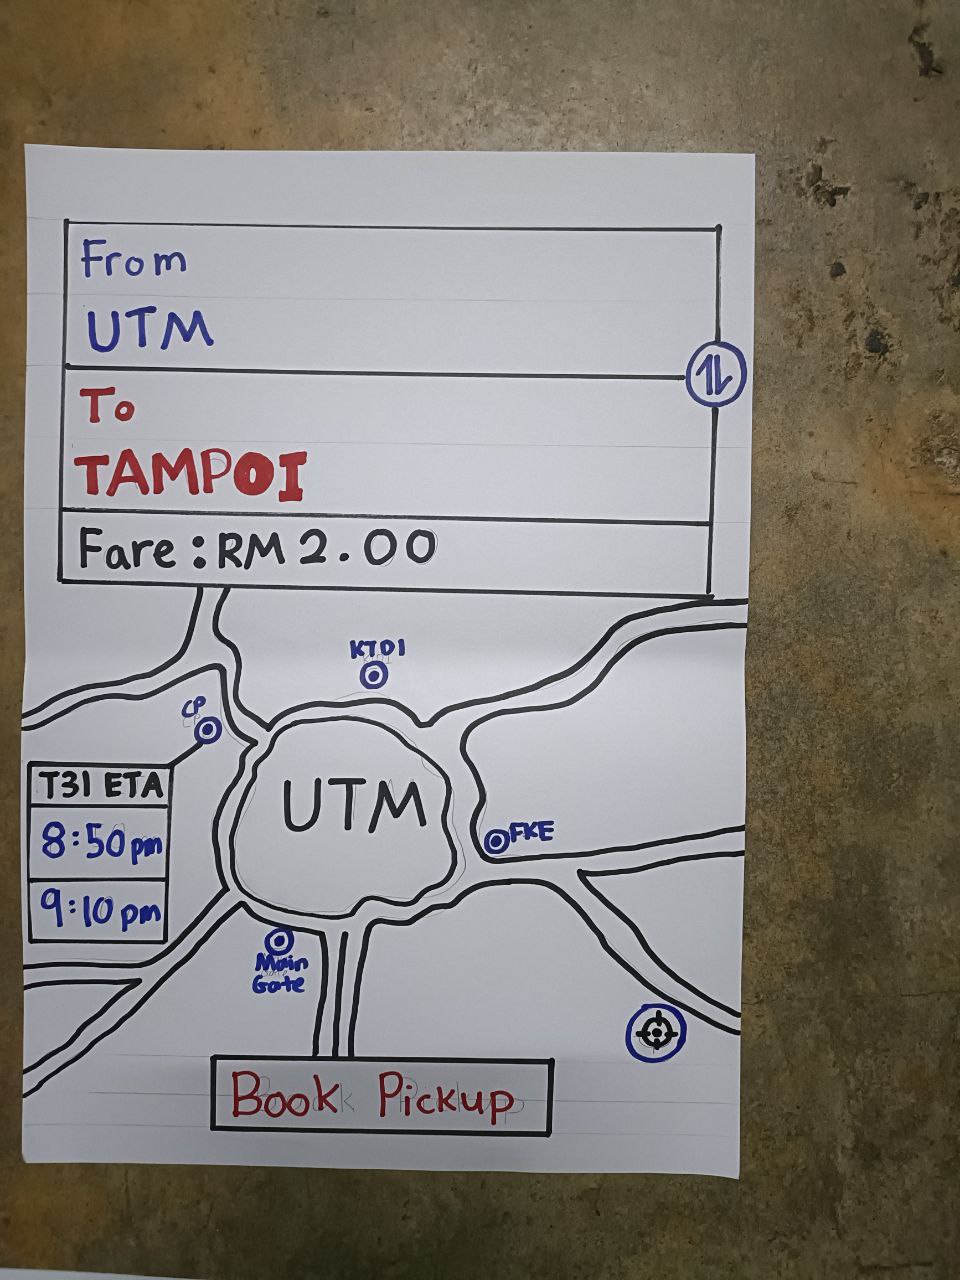 From
UTM
To
TAMPOI
Fare : RM 2.00
KTDI
CP
T31 ETA
8:50 pm
9:10 pm
UTM
FKE
Main
Gate
Book Pickup